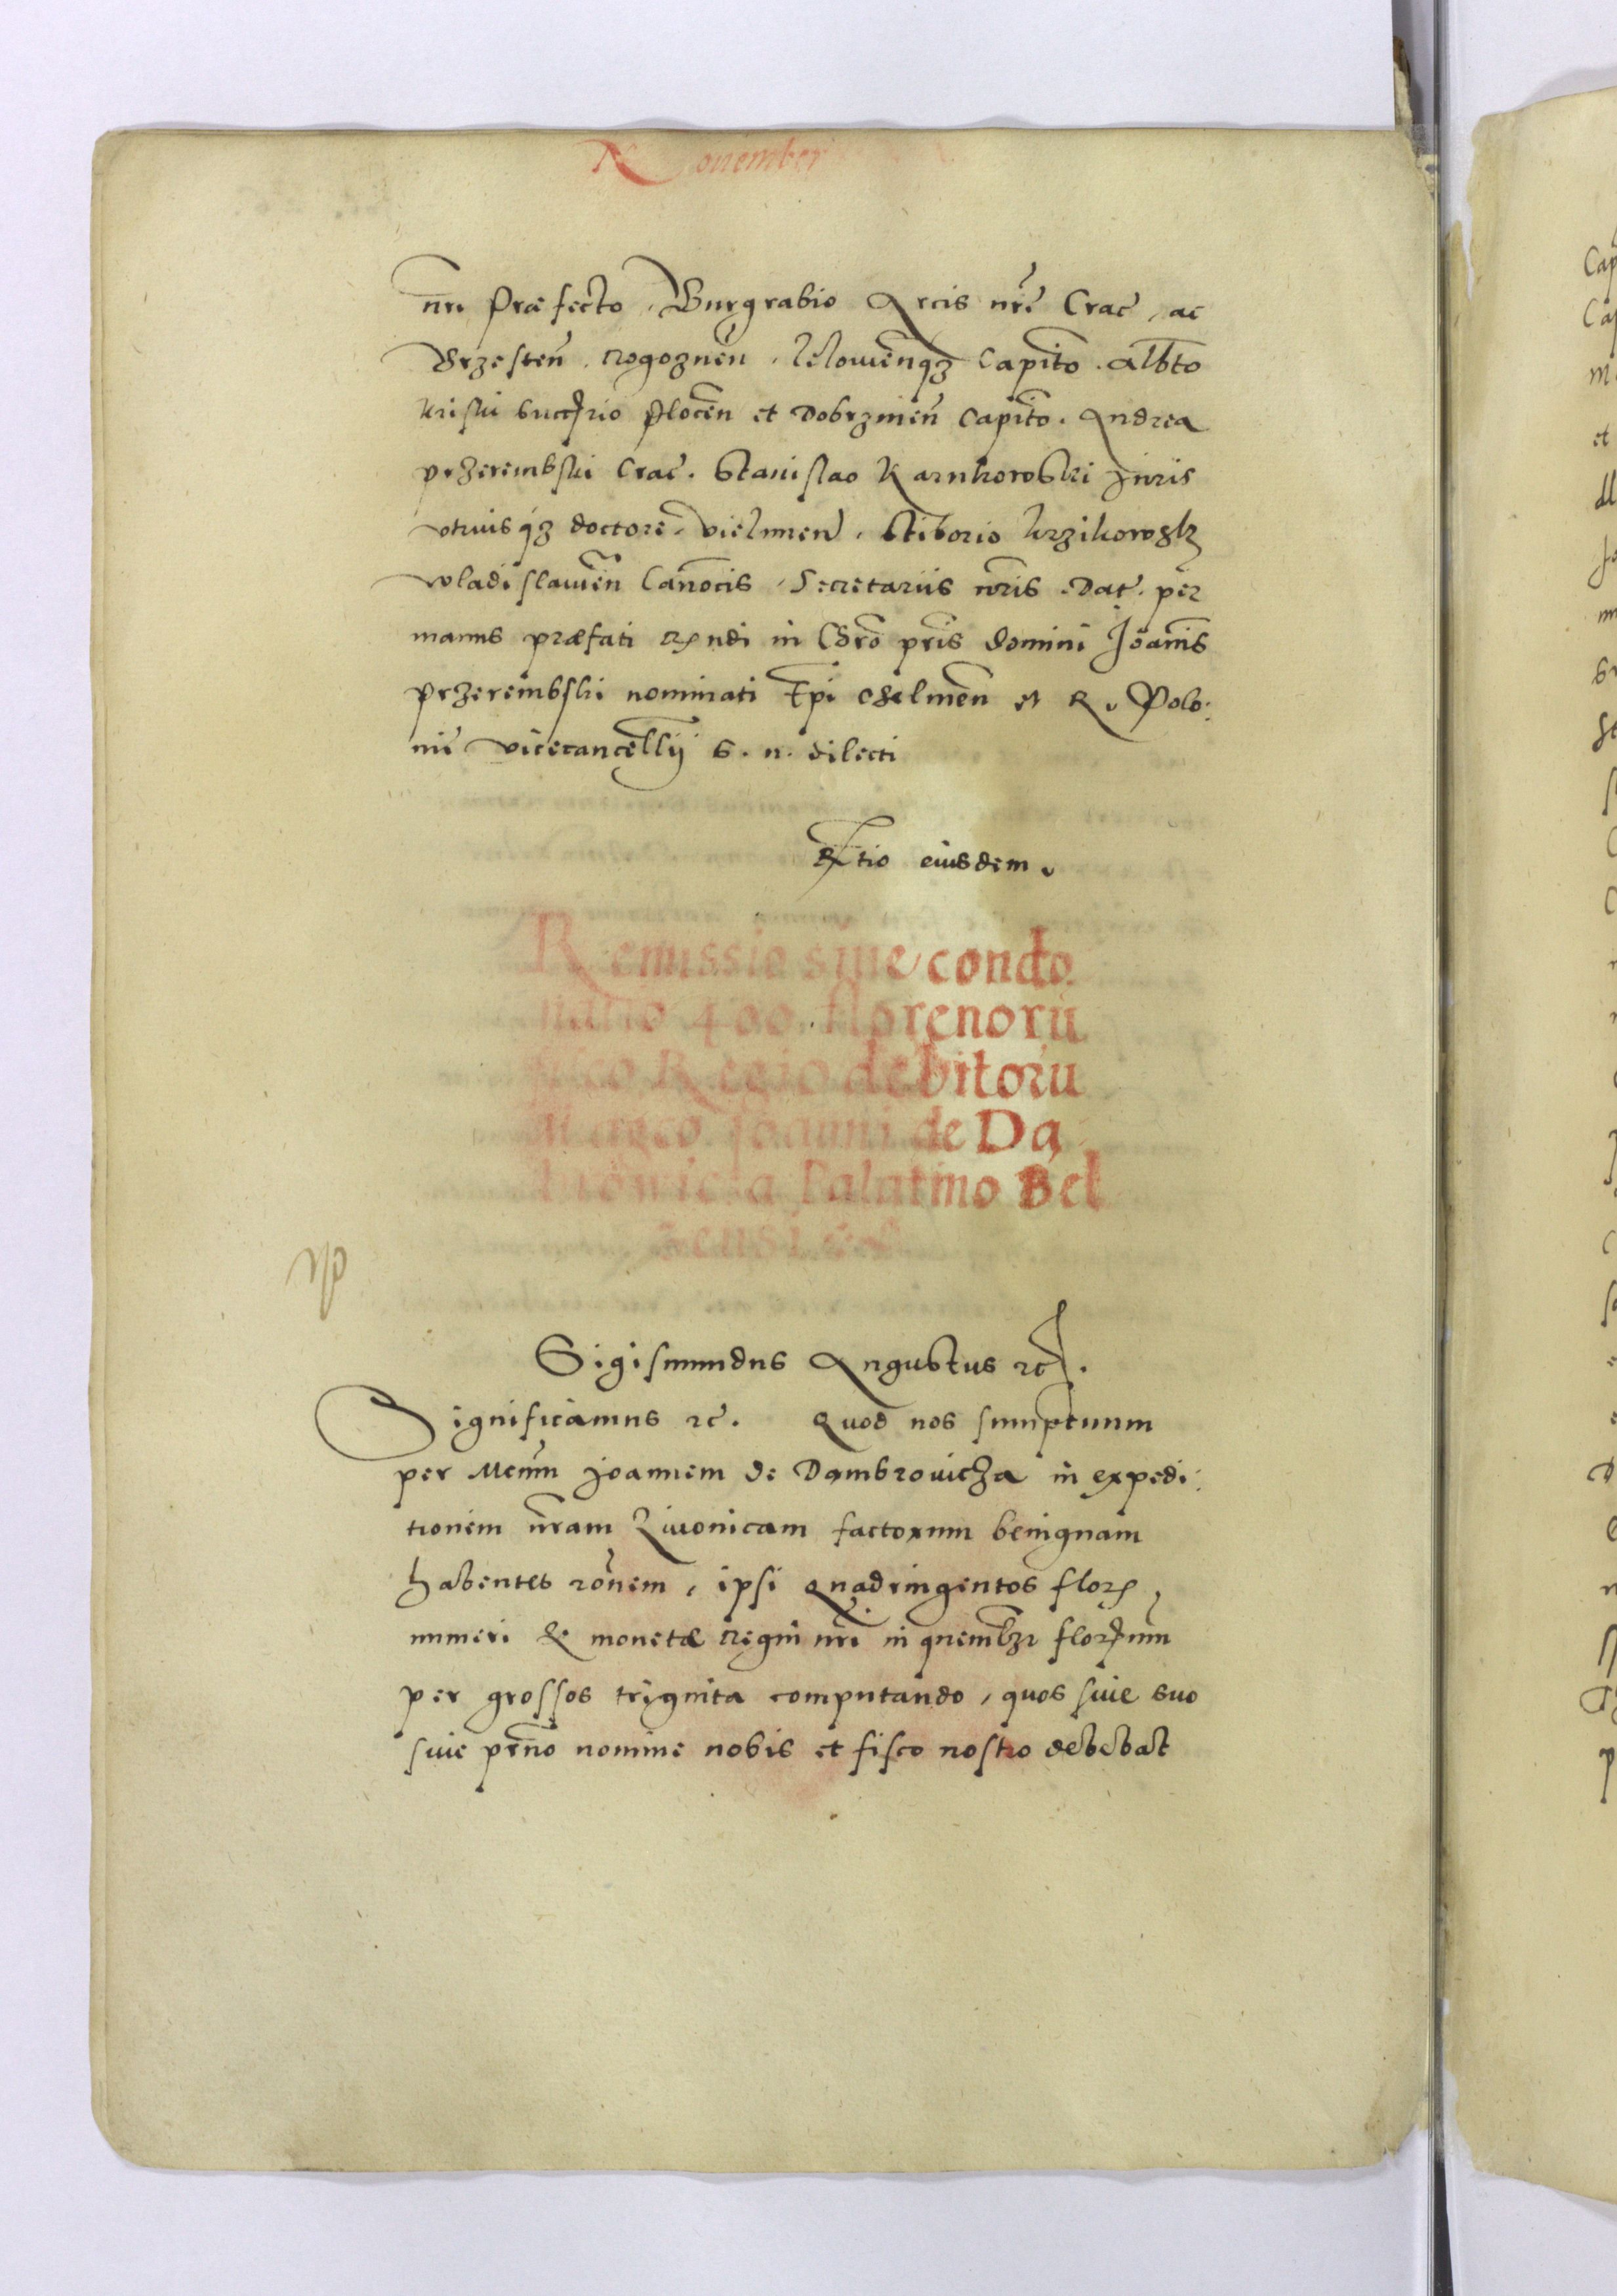 Nouember
nri Præfecto, Burgrabio Arcis nrẽ Crac̃, ac
Brzesteñ. Rogoznẽn, Lelowẽnqʒ Capitõ. Albto
Kriski succ̃rio Plocẽn et Dobrzinẽn Capitõ. Andrea
Przerembski Crac̃. Stanislao Karnkorobski Juris
vtriusqʒ doctore, Vielunen, Stiborio
Wladislawiẽn Canõcis, Secretariis nrĩs. Dat̃. per
manus præfati Rndi in Chrõ pris̃ domini Joãnis
Przerembski nominati Epi Chelmẽn et R. Polo:
niẽ Vicecancellĩj s. n. dilecti
Rtio eiusdem.
Remissio siue condo
natio 400. florenorũ
fisco Regio debitorũ
M⁠agco Joanni de Dą
browicza Palatino Bel
zensi
Sigismundus Augustus rc̃.
Significamus rc̃. Quod nos sumptuum
per Mcũm Joannem de Dąmbrovicza in expedi:
tionem nr̃am Livonicam factorum benignam
habentes rõnem, ipsi Quadringentos flor̃,
numeri & monetæ Regni nri in quemlibꝫ flor̃num
per grossos triginta computando, quos siue suo
siue prño nomine nobis et fisco nostro debebat